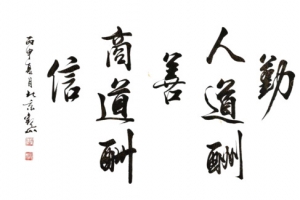 勤
人道酬
善
商道酬
信
丙申夏月北京